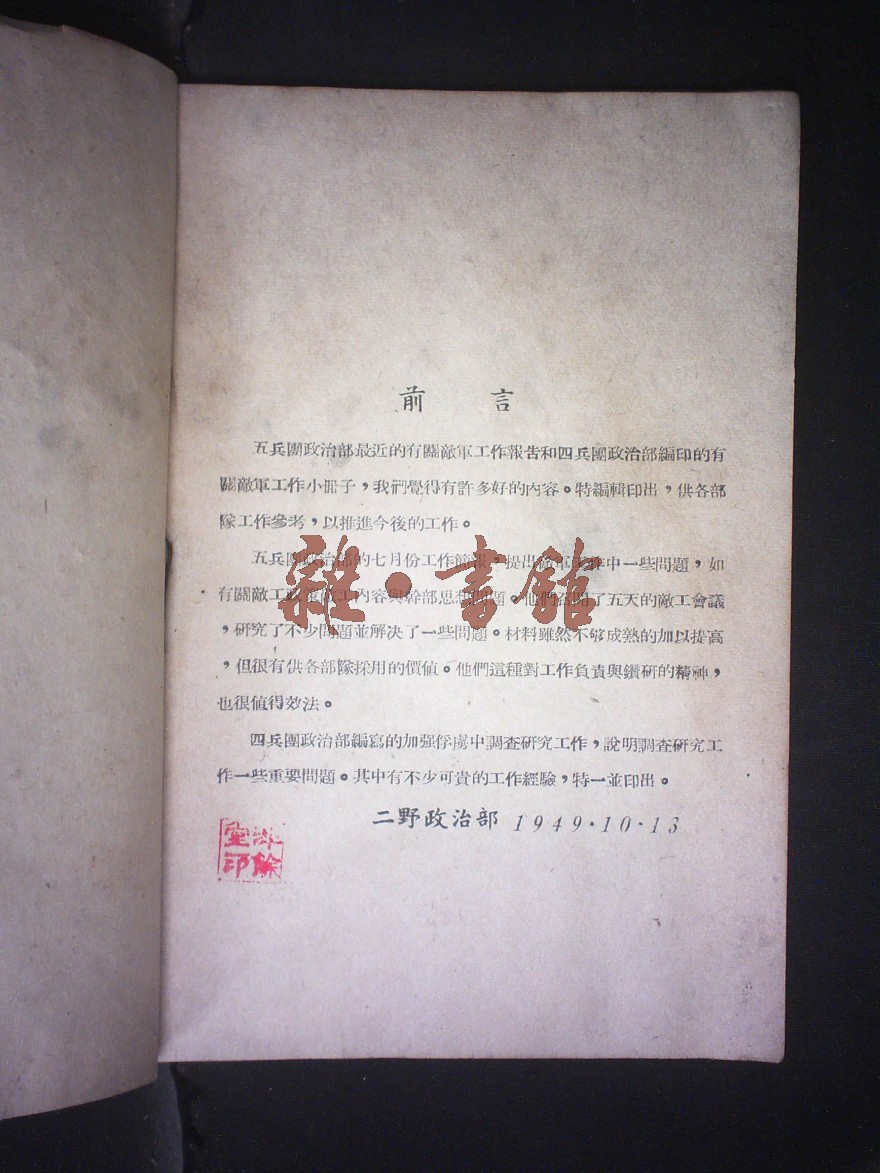 前言
五兵團政治部最近的有關敵軍工作報告和四兵團政治部編印的有
關敵軍工作小冊子，我們覺得有許多好的內容。特編輯印出，供各部
隊工作參考，以推進今後的工作。
五兵團政治部的七月份工作簡報，提出敵軍工作中一些問題，如
有關敵工政策敵工內容與幹部思想問題。他們召開了五天的敵工會議
，研究了不少問題並解決了一些問題。材料雖然不够成熟的加以提高
，但很有供各部隊採用的價值。他們這種對工作負責與鑽研的精神，
也很值得效法。
四兵團政治部編寫的加强俘虜中調查研究工作，說明調查研究工
作一些重要問題。其中有不少可貴的工作經驗，特一並印出。
二野政治部 1949·10·13
雜·書館
餘
堂印